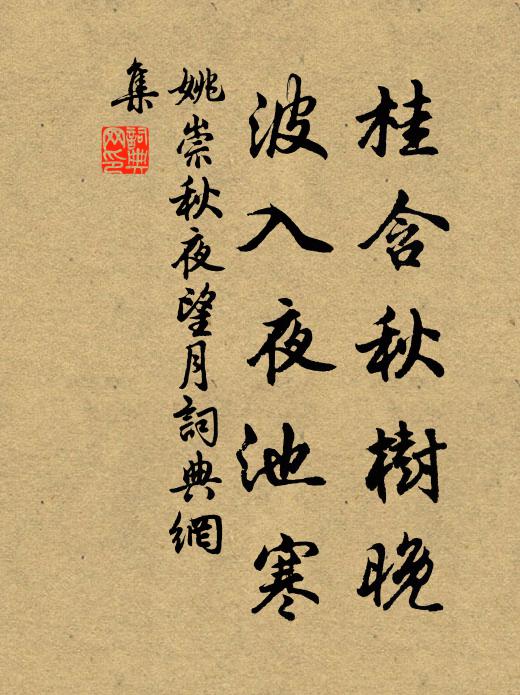 桂含秋樹晚
波入夜池寒
姚崇秋夜望月詞典網
集
詞典
网印